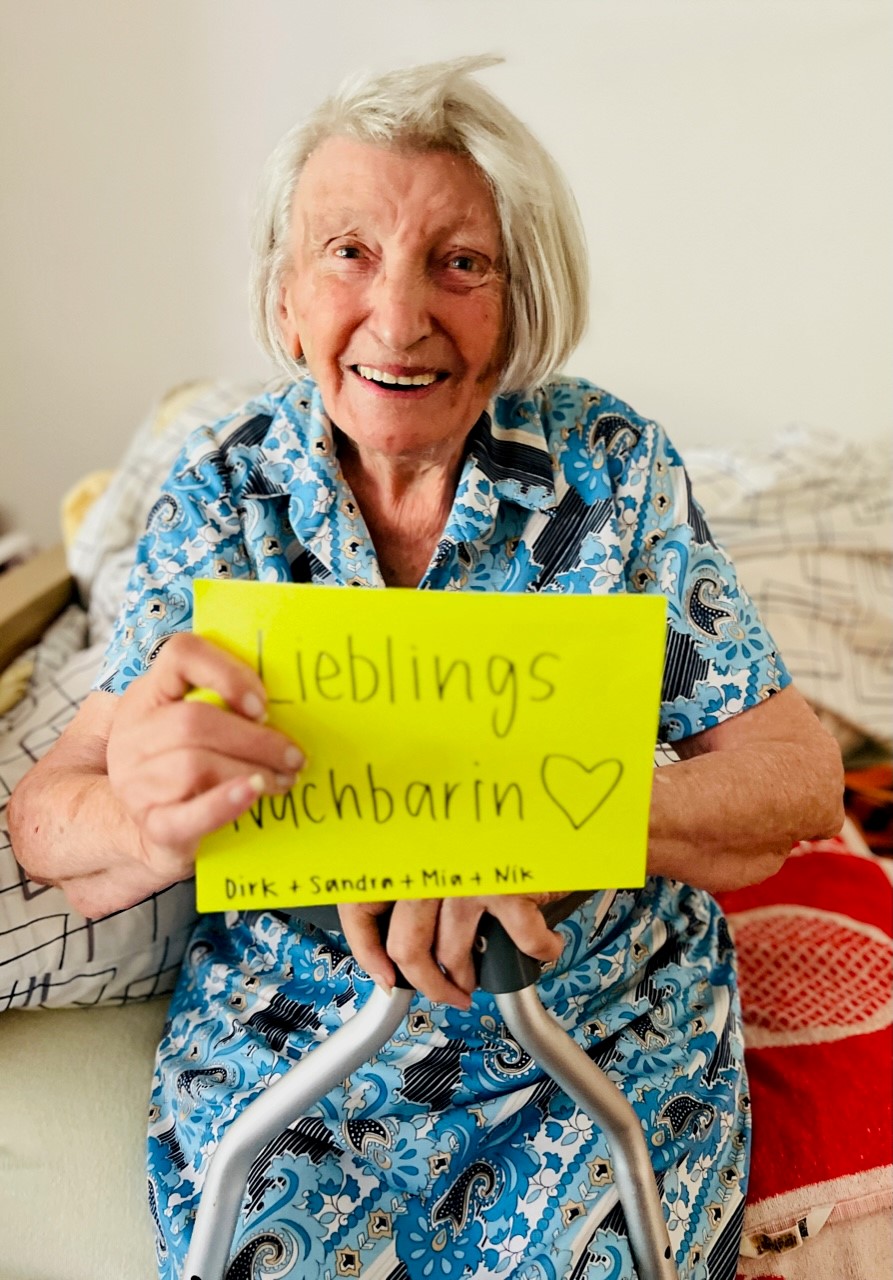 Lieblings
Nachbarin ♡
Dirk + Sandra + Mia + Nik